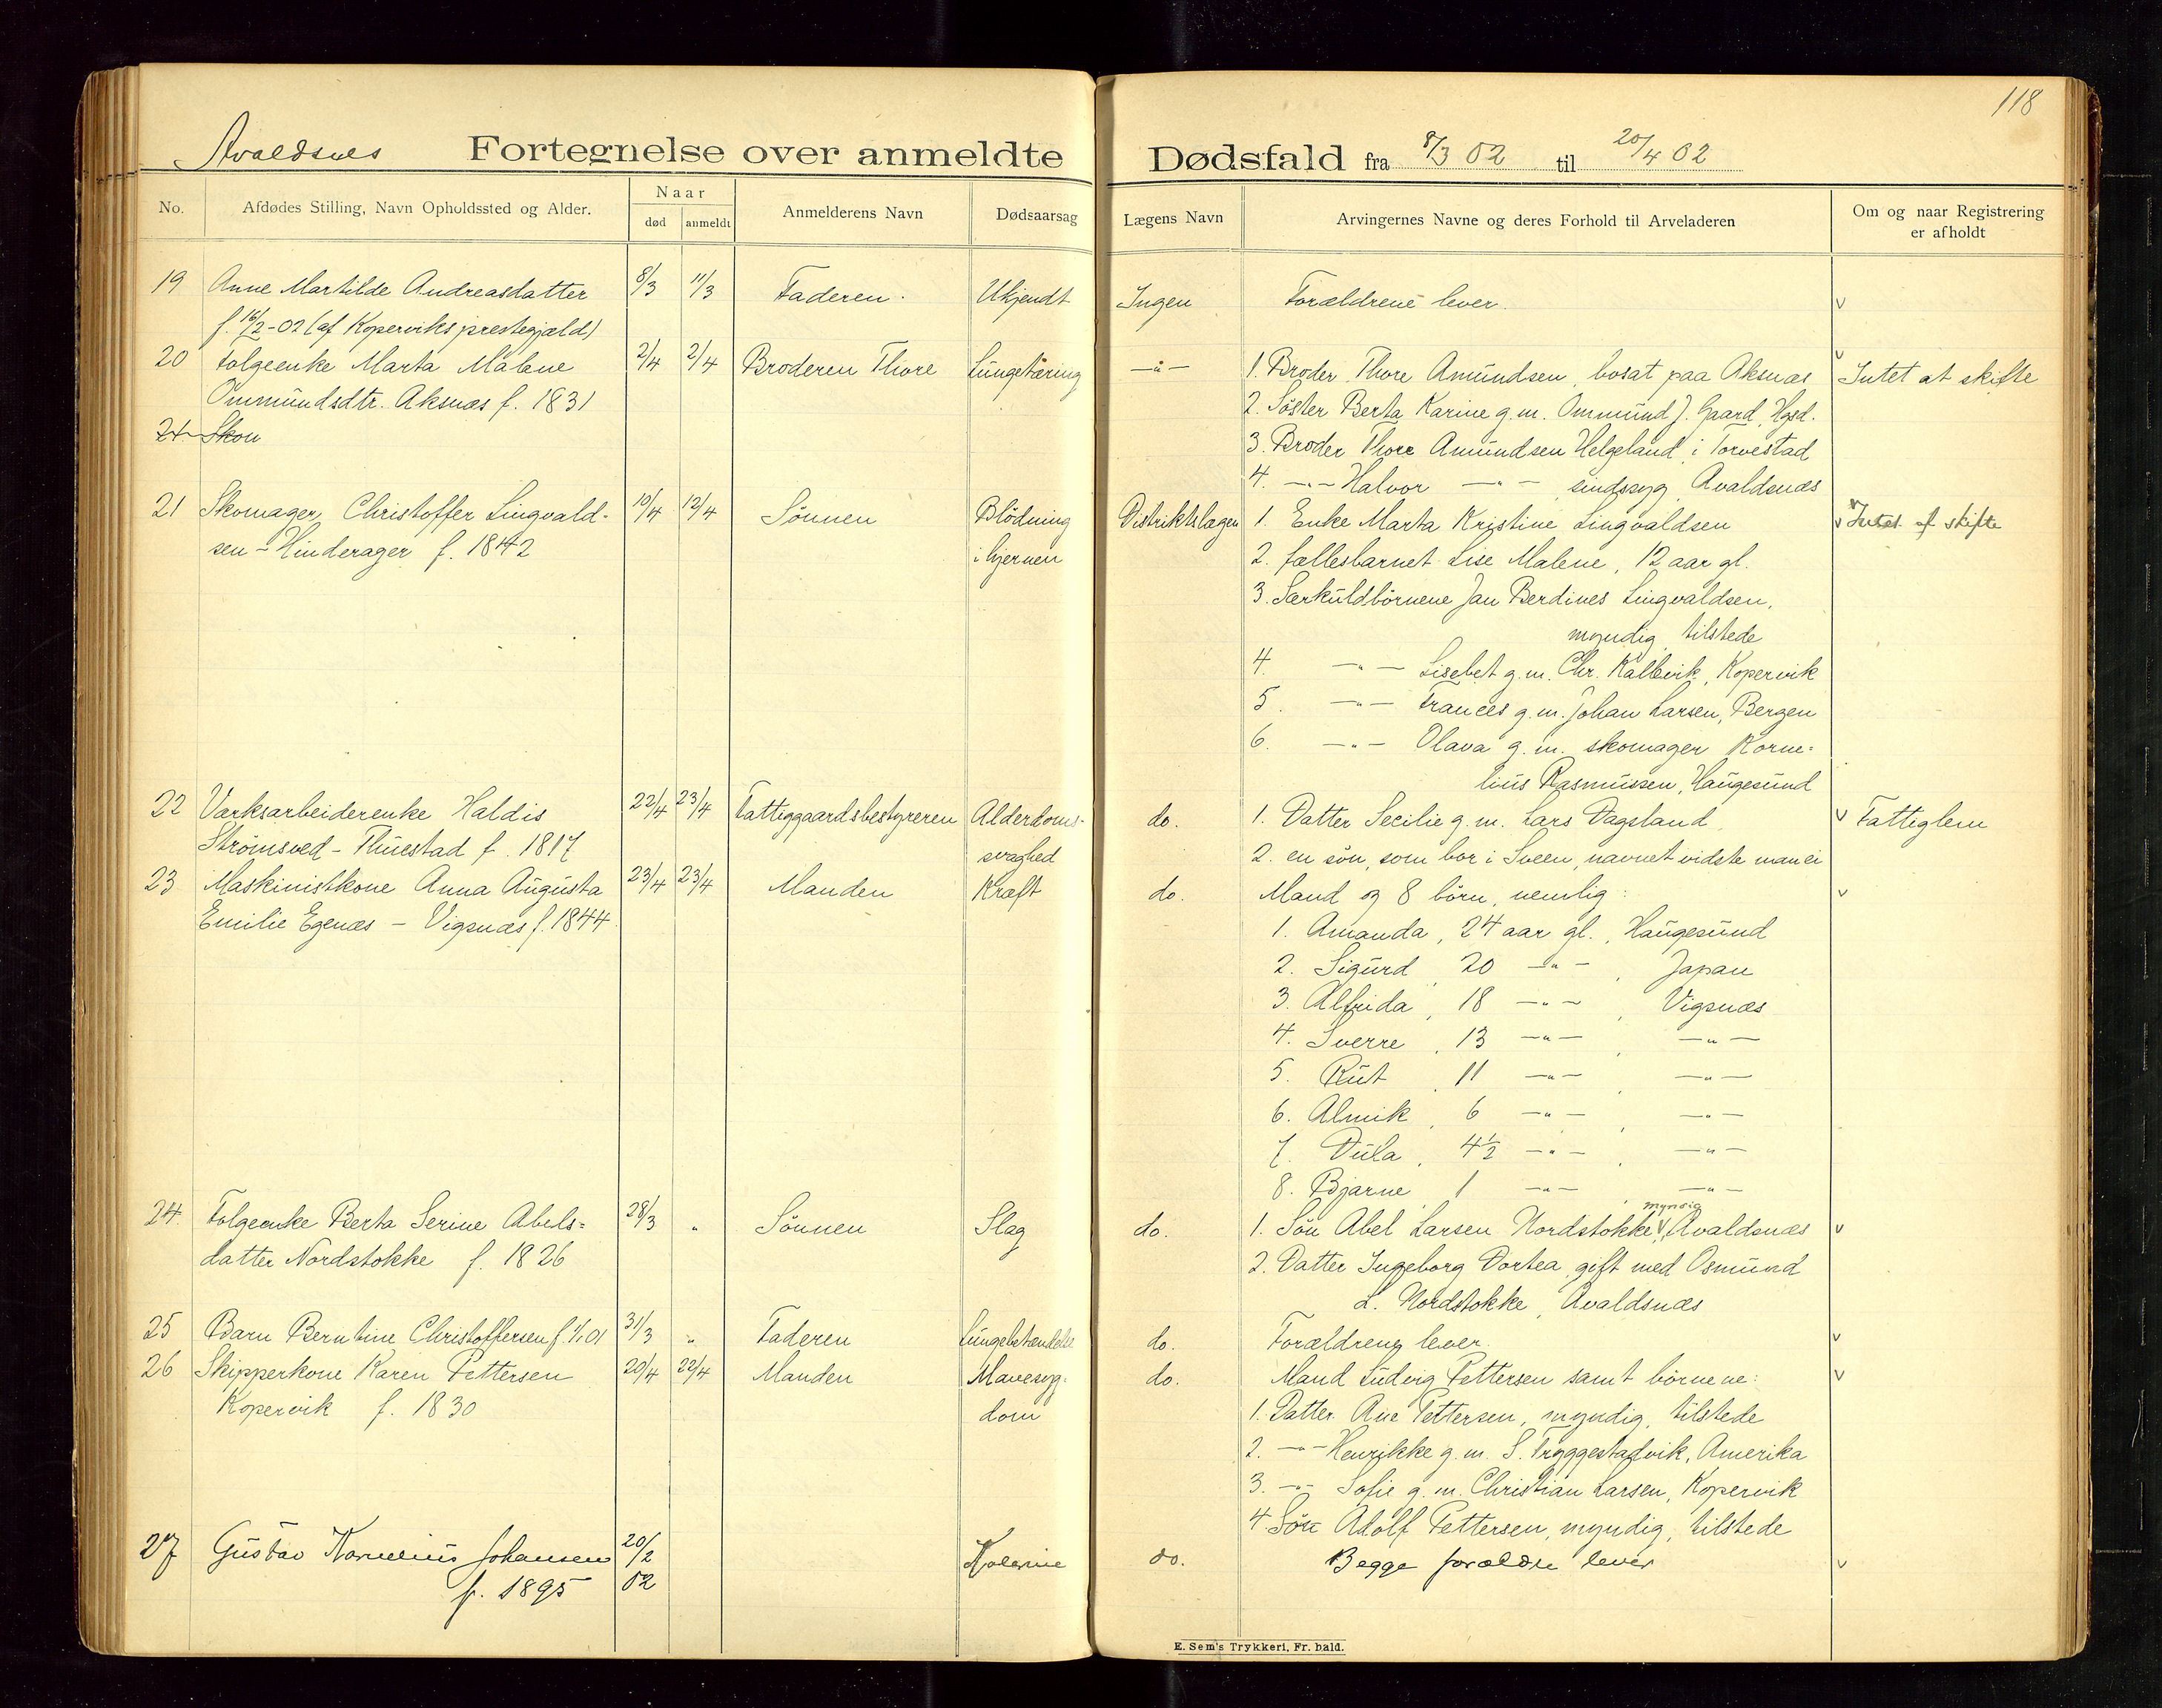 118
Avaldsnes Fortegnelse over anmeldte Dødsfald fra 8/3 02 til 20/4 02
No. Afdødes Stilling, Navn Opholdssted og Alder. Naar død anmeldt Anmelderens Navn Dødsaarsag Lægens Navn Arvingernes Navne og deres Forhold til Arveladeren Om og naar Registrering er afholdt
19 Anne Martilde Andreasdatter 8/3 11/3 Faderen. Ukjendt Ingen Forældrene lever. v
f. 16/2-02 (af Koperviks prestegjæld)
20 Folgeenke Marta Malene 2/4 2/4 Broderen Thore Lungetæring —"— 1. Broder Thore Amundsen, bosat paa Aksnæs v Intet at skifte
Ommundsdtr. Aksnæs f. 1831 2. Søster Berta Karine g.m. Ommund J. Gaard, Hgsd.
21 Skou 3. Broder Thore Amundsen Helgeland, i Torvestad
4. —"— Halvor —"— sindssyg Avaldsnæs
21 Skomager Christoffer Lingvald- 10/4 12/4 Sønnen Blödning Distriktslægen 1. Enke Marta Kristine Lingvaldsen v Intet at skifte
sen - Hinderager f. 1842 i hjernen 2. fællesbarnet Lise Malene, 12 aar gl.
3. Særkuldbörnene Jan Berdines Lingvaldsen,
myndig, tilstede
4. —"— Lisebet g.m. Chr. Kallevik, Kopervik
5. —"— Frances g.m. Johan Larsen, Bergen
6. —"— Olava g.m. skomager Korne=
lius Rasmussen, Haugesund
22 Værksarbeiderenke Haldis 22/4 23/4 Fattiggaardsbestyreren Alderdoms- do. 1. Datter Secilie g.m. Lars Dagsland v Fattiglem
Strømsved - Thuestad f. 1817 svaghed 2. en søn, som bor i Sveen, navnet vidste man ei
23 Maskinistkone Anna Augusta 23/4 23/4 Manden Kræft do. Mand og 8 börn, nemlig: v
Emilie Egenæs - Vigsnæs f. 1844. 1. Amanda, 24 aar gl., Haugesund
2. Sigurd, 20 —"—, Japan
3. Alfrida, 18 —"—, Vigsnæs
4. Sverre, 13 —"—, —"—
5. Rut, 11 —"—, —"—
6. Almik, 6 —"—, —"—
7. Dula, 4½ —"—, —"—
8. Bjarne, 1 —"—, —"—
24. Folgeenke Berta Serine Abels= 28/3 " Sønnen Slag do. 1. Søn Abel Larsen Nordstokke, myndig, Avaldsnæs v
datter Nordstokke f. 1826 2. Datter Ingeborg Dortea, gift med Osmund
L. Nordstokke, Avaldsnæs
25 Barn Berntine Christoffersen f. 1/1 01 31/3 " Faderen Lungebetændelse do. Forældrene lever. v
26 Skipperkone Karen Pettersen 20/4 22/4 Manden Mavesyg- do. Mand Ludvig Pettersen samt börnene: v
Kopervik f. 1830 dom 1. Datter Ane Pettersen, myndig, tilstede
2. —"— Henrikke g.m. S. Tryggestadvik, Amerika
3. —"— Sofie g.m. Christian Larsen, Kopervik
4 Søn Adolf Pettersen, myndig, tilstede
27 Gustav Kornelius Johansen 20/2 Kolerine do. Begge forældre lever v
f. 1895 02
E. Sem's Trykkeri, Fr. hald.